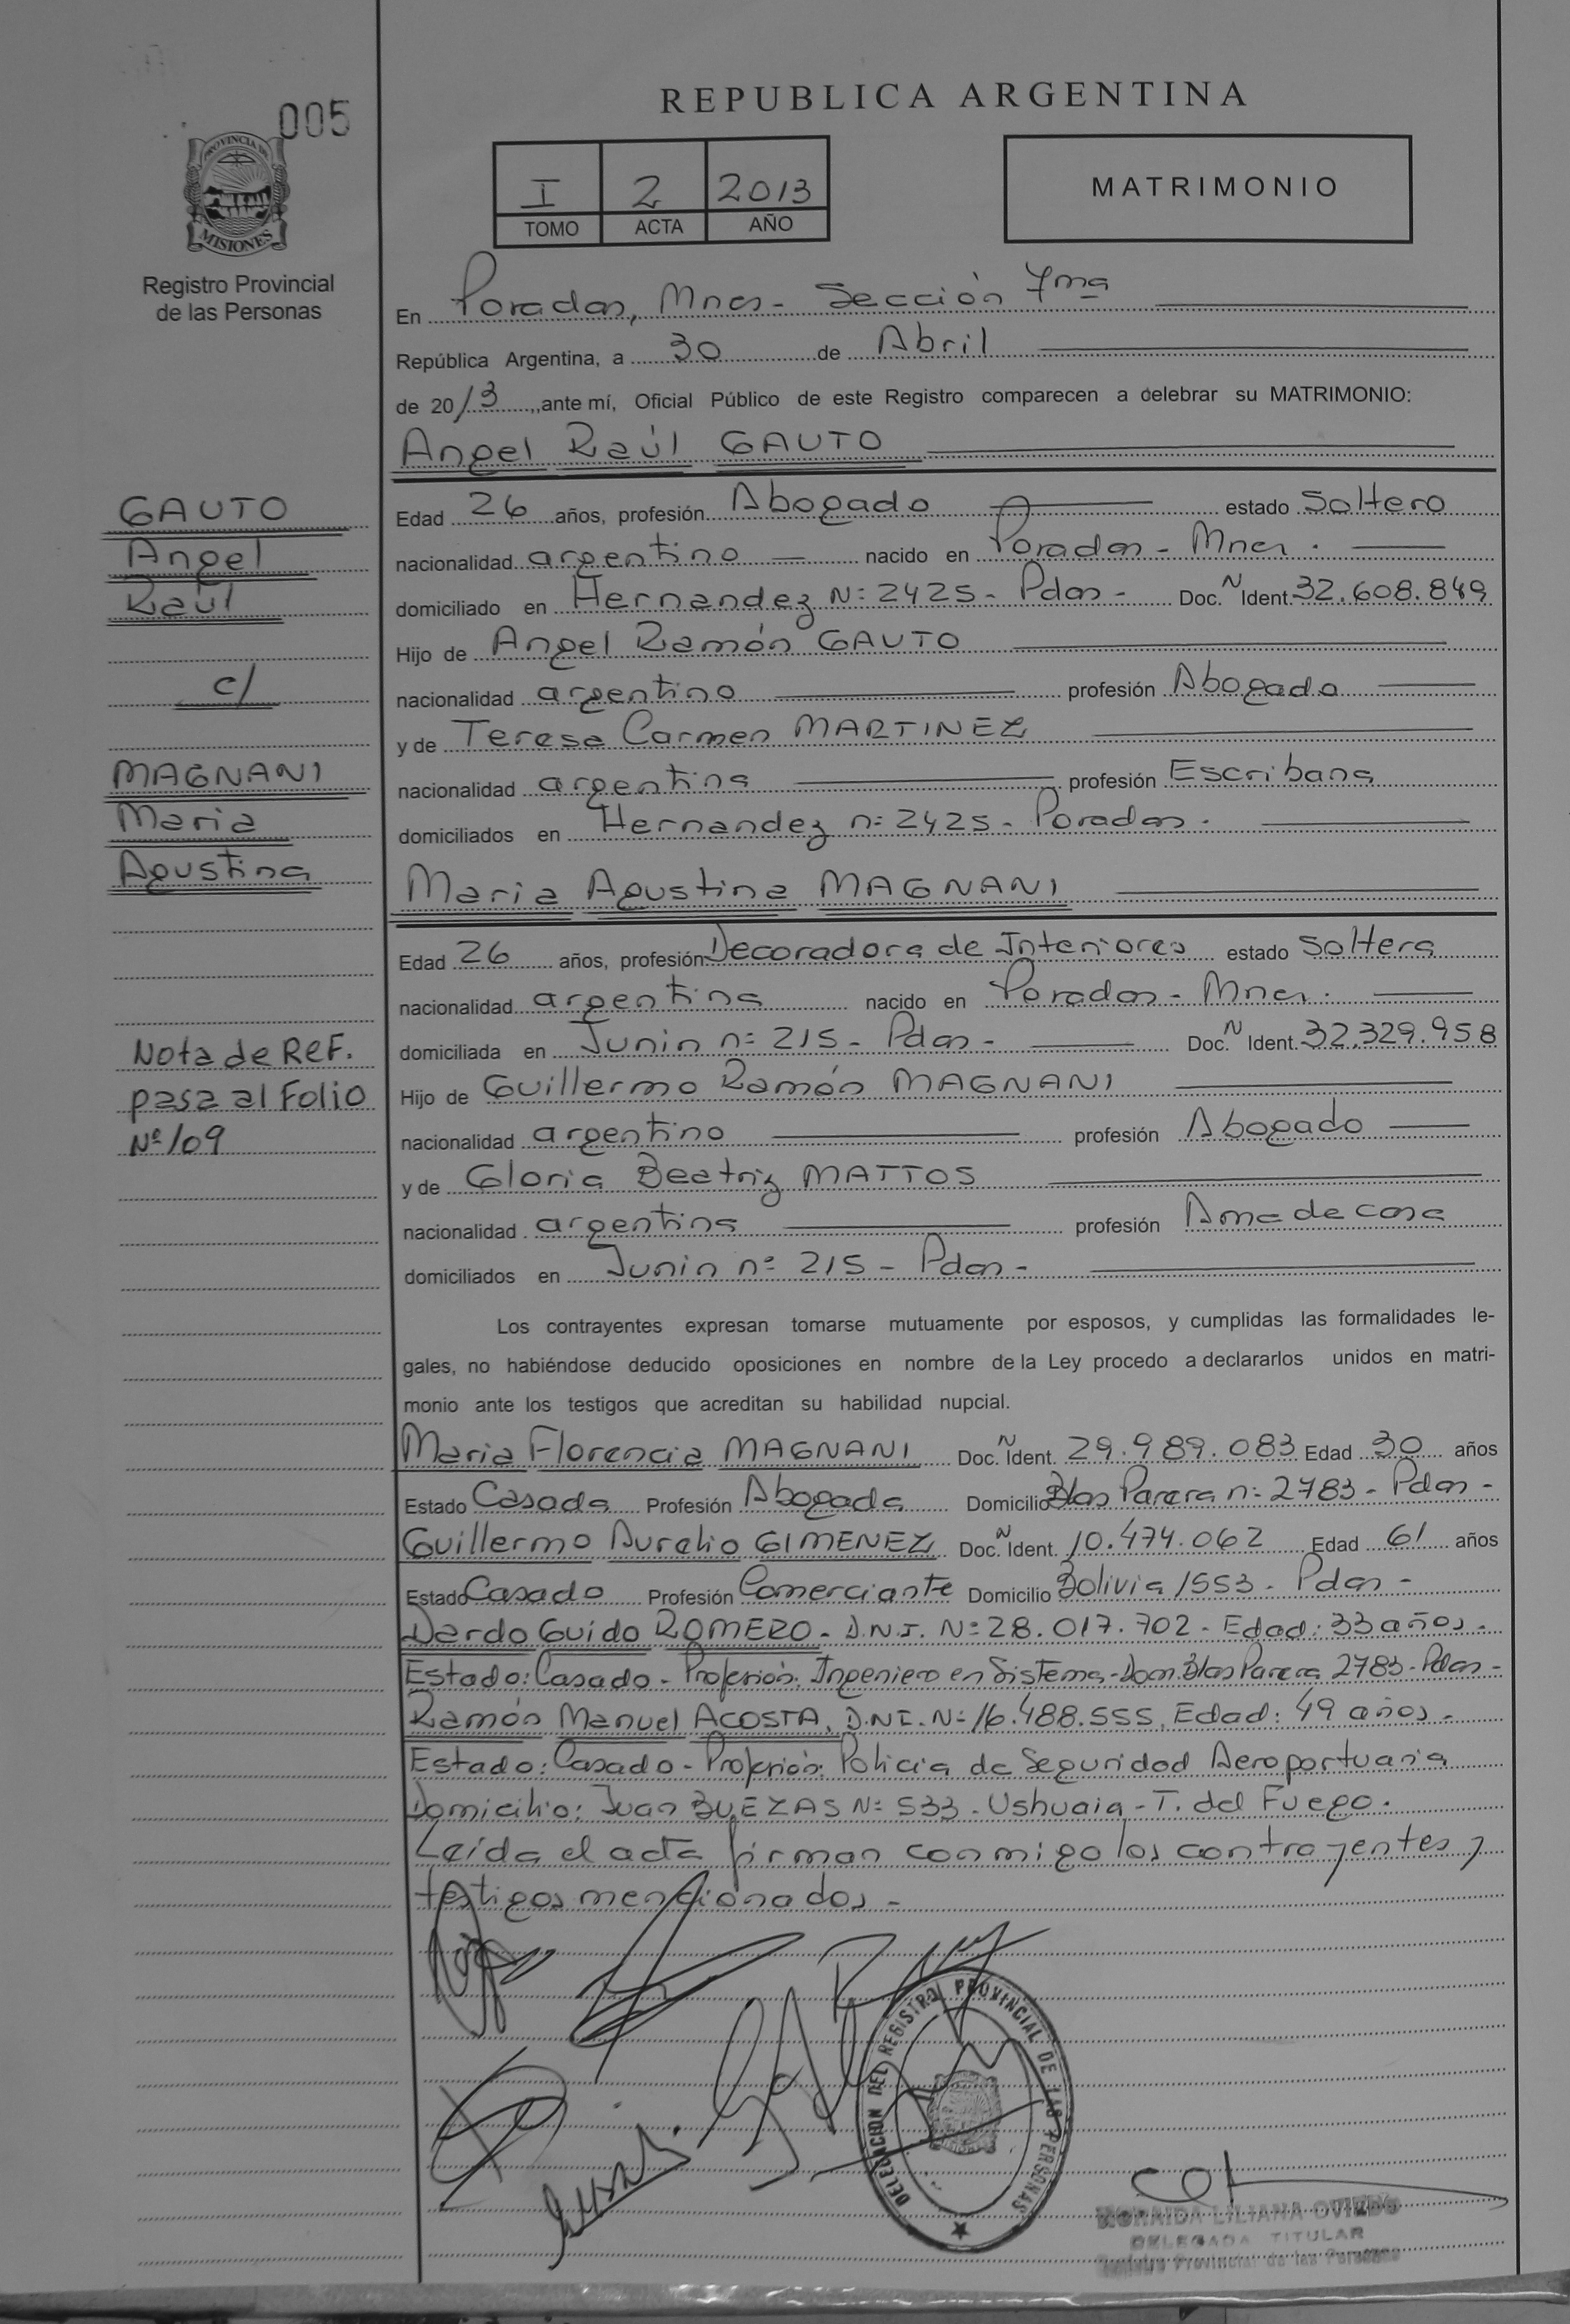 005
PROVINCIA DE
MISIONES
Registro Provincial
de las Personas
REPUBLICA ARGENTINA
I 2 2013
TOMO ACTA AÑO
MATRIMONIO
En Posadas, Mnes- Sección 7ma
República Argentina, a 30 de Abril
de 2013, ante mí, Oficial Público de este Registro comparecen a celebrar su MATRIMONIO:
Angel Raúl GAUTO
GAUTO
Angel
Raúl
c/
MAGNANI
Maria
Agustina
Nota de REF.
pasa al Folio
Nº 109
Edad 26 años, profesión Abogado estado Soltero
nacionalidad argentino nacido en Posadas - Mnes.
domiciliado en Hernandez Nº 2425 - Pdas - Doc. N Ident. 32.608.849
Hijo de Angel Ramón GAUTO
nacionalidad argentino profesión Abogado
y de Teresa Carmen MARTINEZ
nacionalidad argentina profesión Escribana
domiciliados en Hernandez nº 2425 - Posadas.
Maria Agustina MAGNANI
Edad 26 años, profesión Decoradora de Interiores estado Soltera
nacionalidad argentina nacido en Posadas - Mnes.
domiciliada en Junin nº 215 - Pdas - Doc. N Ident. 32.329.958
Hijo de Guillermo Ramón MAGNANI
nacionalidad argentino profesión Abogado
y de Gloria Beatriz MATTOS
nacionalidad argentina profesión Ama de casa
domiciliados en Junin nº 215 - Pdas -
Los contrayentes expresan tomarse mutuamente por esposos, y cumplidas las formalidades le-
gales, no habiéndose deducido oposiciones en nombre de la Ley procedo a declararlos unidos en matri-
monio ante los testigos que acreditan su habilidad nupcial.
Maria Florencia MAGNANI Doc. N Ident. 29.989.083 Edad 30 años
Estado Casada Profesión Abogada Domicilio Blas Parera nº 2783 - Pdas -
Guillermo Aurelio GIMENEZ Doc. N Ident. 10.474.062 Edad 61 años
Estado Casado Profesión Comerciante Domicilio Bolivia 1553 - Pdas -
Dardo Guido ROMERO - D.N.I. Nº 28.017.702 - Edad: 33 años -
Estado: Casado - Profesión: Ingeniero en Sistema - Dom. Blas Parera 2783 - Pdas -
Ramón Manuel ACOSTA, D.N.I. Nº 16.488.555, Edad: 49 años -
Estado: Casado - Profesión: Policia de Seguridad Aeroportuaria
Domicilio: Juan BUEZAS Nº 533 - Ushuaia - T. del Fuego.
Leída el acta firman conmigo los contrayentes y
testigos mencionados -
DELEGACION DEL REGISTRO PROVINCIAL DE LAS PERSONAS
LILIANA OVIEDO
DELEGADA TITULAR
Registro Provincial de las Personas